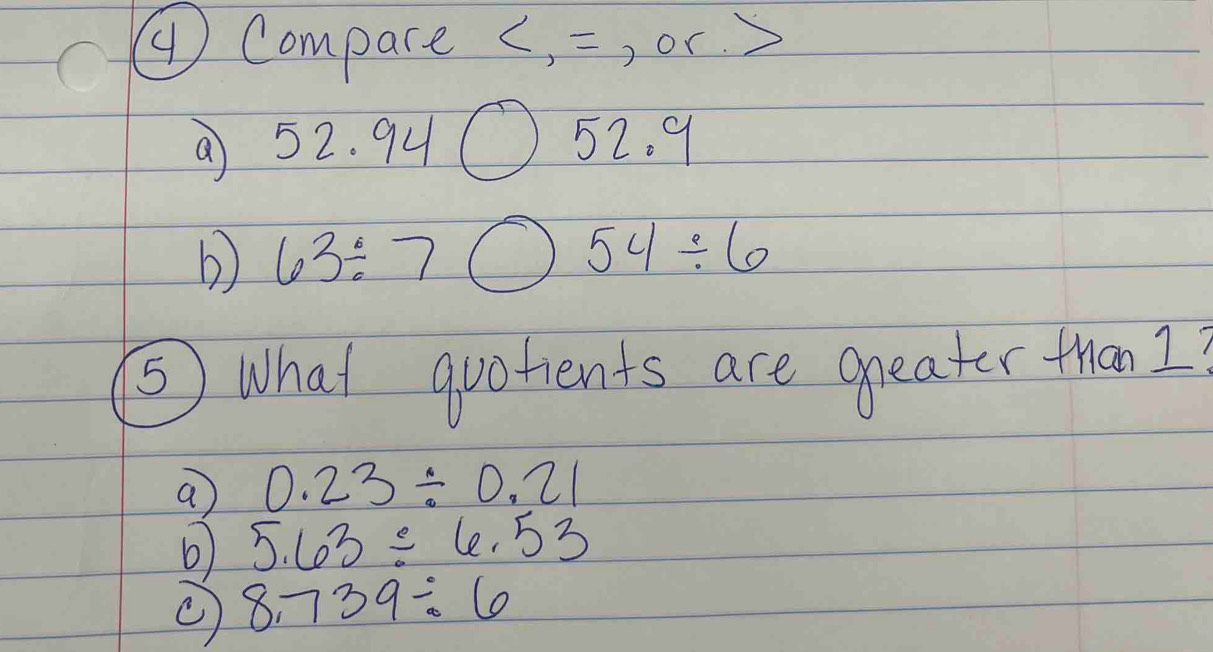 ④ Compare <, =, or >
a) 52.94 ◯ 52.9
b) 63 ÷ 7 ◯ 54 ÷ 6
⑤ What quotients are greater than 1?
a) 0.23 ÷ 0.21
b) 5.63 ÷ 6.53
c) 8.739 ÷ 6